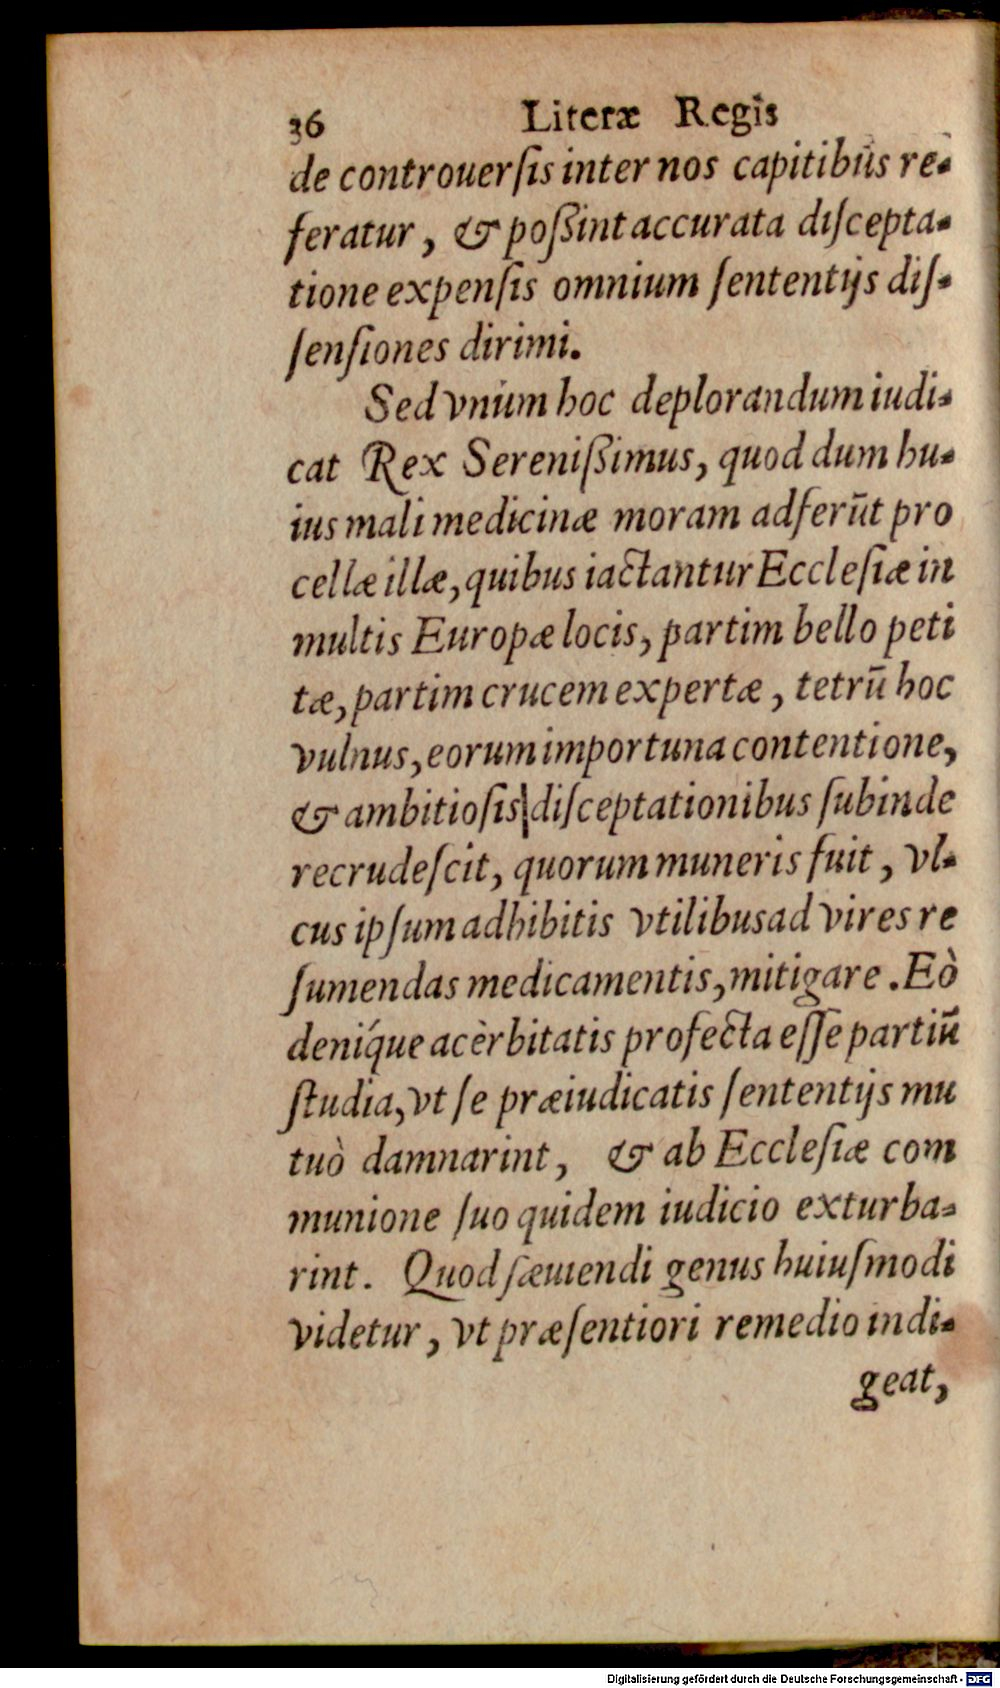 36 Literæ Regis
de controuerſis inter nos capitibus re-
feratur, & poßint accurata diſcepta-
tione expenſis omnium ſententijs diſ-
ſenſiones dirimi.
Sed vnum hoc deplorandum iudi-
cat Rex Sereniſſimus, quod dum hu-
ius mali medicinæ moram adferūt pro
cellæ illæ, quibus iactantur Eccleſiæ in
multis Europæ locis, partim bello peti
tæ, partim crucem expertæ, tetrū hoc
vulnus, eorum importuna contentione,
& ambitioſis diſceptationibus ſubinde
recrudeſcit, quorum muneris fuit, vl-
cus ipſum adhibitis vtilibus ad vires re
ſumendas medicamentis, mitigare. Eò
deniq́ue acèrbitatis profecta eſſe partiū
ſtudia, vt ſe præiudicatis ſententijs mu
tuò damnarint, & ab Eccleſiæ com
munione ſuo quidem iudicio exturba-
rint. Quod ſæuiendi genus huiuſmodi
videtur, vt præſentiori remedio indi-
geat,
Digitalisierung gefördert durch die Deutsche Forschungsgemeinschaft - DFG